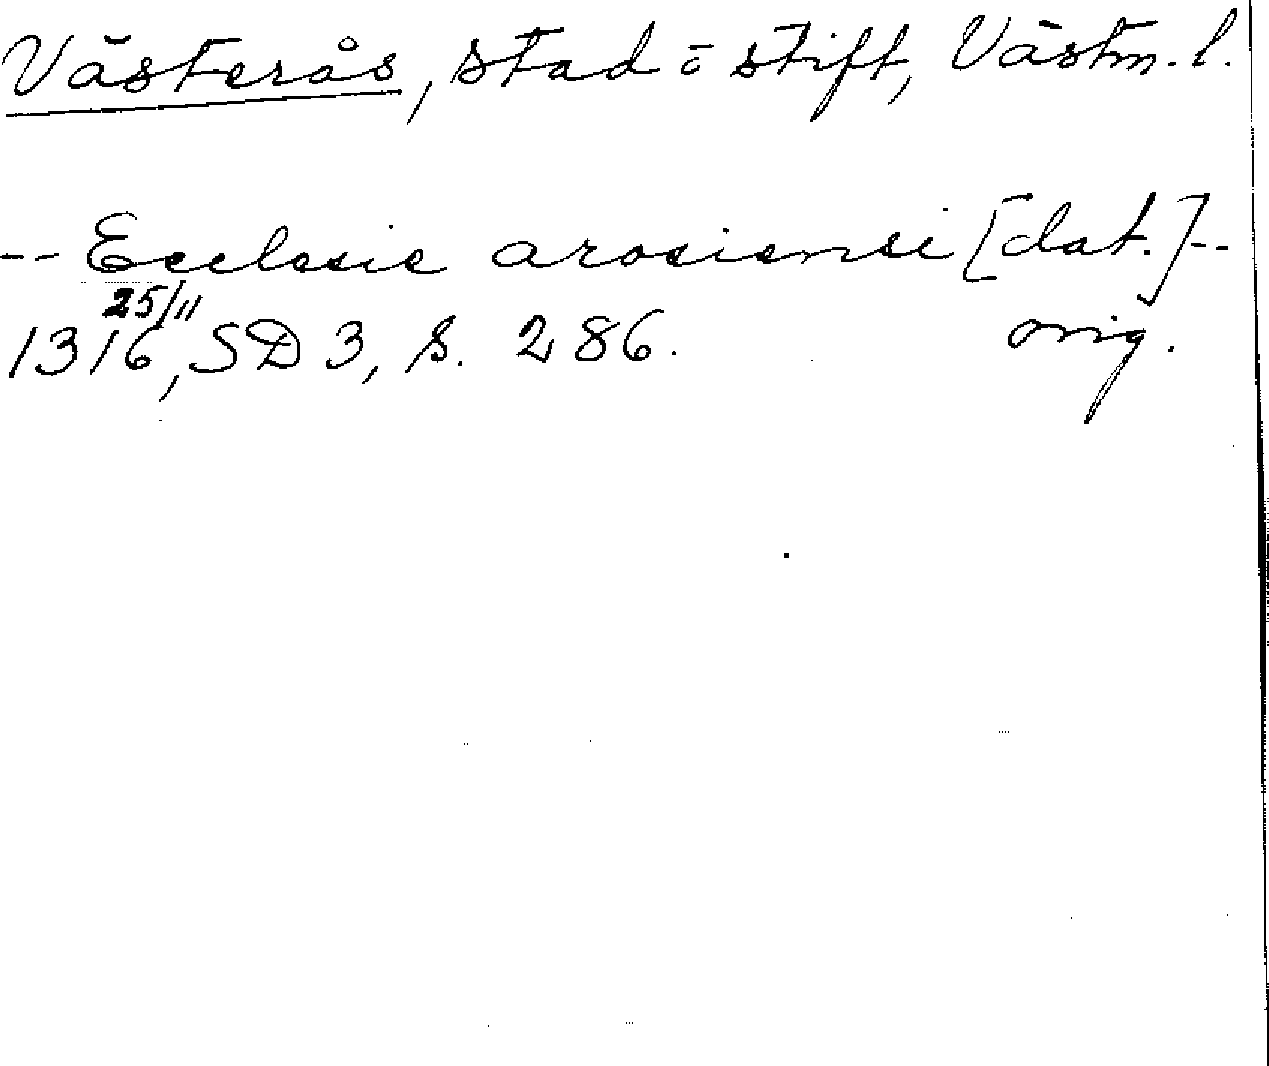 Västerås, stad ō stift, Västm. l.
-- Ecclesie arosiensi [dat.] --
25/11
1316, SD 3, s. 286. orig.